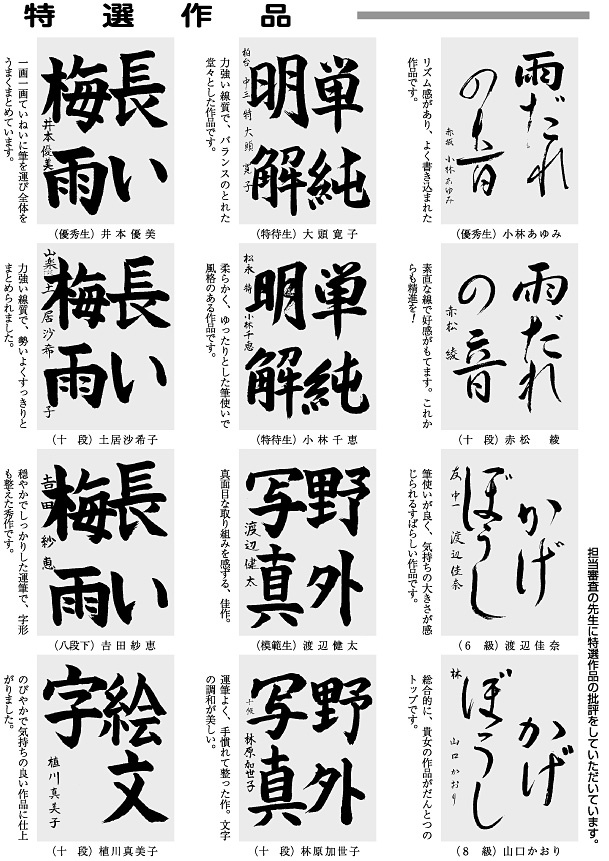 特選作品
担当審査の先生に特選作品の批評をしていただいています。
雨だれ
の音
赤坂 小林あゆみ
リズム感があり、よく書き込まれた
作品です。
(優秀生)小林あゆみ
単純
明解
柏台 中三 特 大頭 寛子
力強い線質で、バランスのとれた
堂々とした作品です。
(特待生)大頭寛子
長い
梅雨
井本優美
一画一画ていねいに筆を運び全体を
うまくまとめています。
(優秀生)井本優美
雨だれ
の音
赤松 綾
素直な線で好感がもてます。これか
らも精進を!
(十 段)赤松 綾
単純
明解
松永 特 小林千恵
柔らかく、ゆったりとした筆使いで
風格のある作品です。
(特待生)小林千恵
長い
梅雨
山楽 土居沙希子
力強い線質で、勢いよくすっきりと
まとめられました。
(十 段)土居沙希子
かげ
ぼうし
友 中一 渡辺佳奈
筆使いが良く、気持ちの大きさが感
じられるすばらしい作品です。
(6 級)渡辺佳奈
野外
写真
渡辺健太
真面目な取り組みを感ずる、佳作。
(模範生)渡辺健太
長い
梅雨
吉田紗恵
穏やかでしっかりした運筆で、字形
も整えた秀作です。
(八段下)吉田紗恵
かげ
ぼうし
林 山口かおり
総合的に、貴女の作品がだんとつの
トップです。
(8 級)山口かおり
野外
写真
十段 林原加世子
運筆よく、手慣れて整った作。文字
の調和が美しい。
(十 段)林原加世子
絵文
字
植川真美子
のびやかで気持ちの良い作品に仕上
がりました。
(十 段)植川真美子